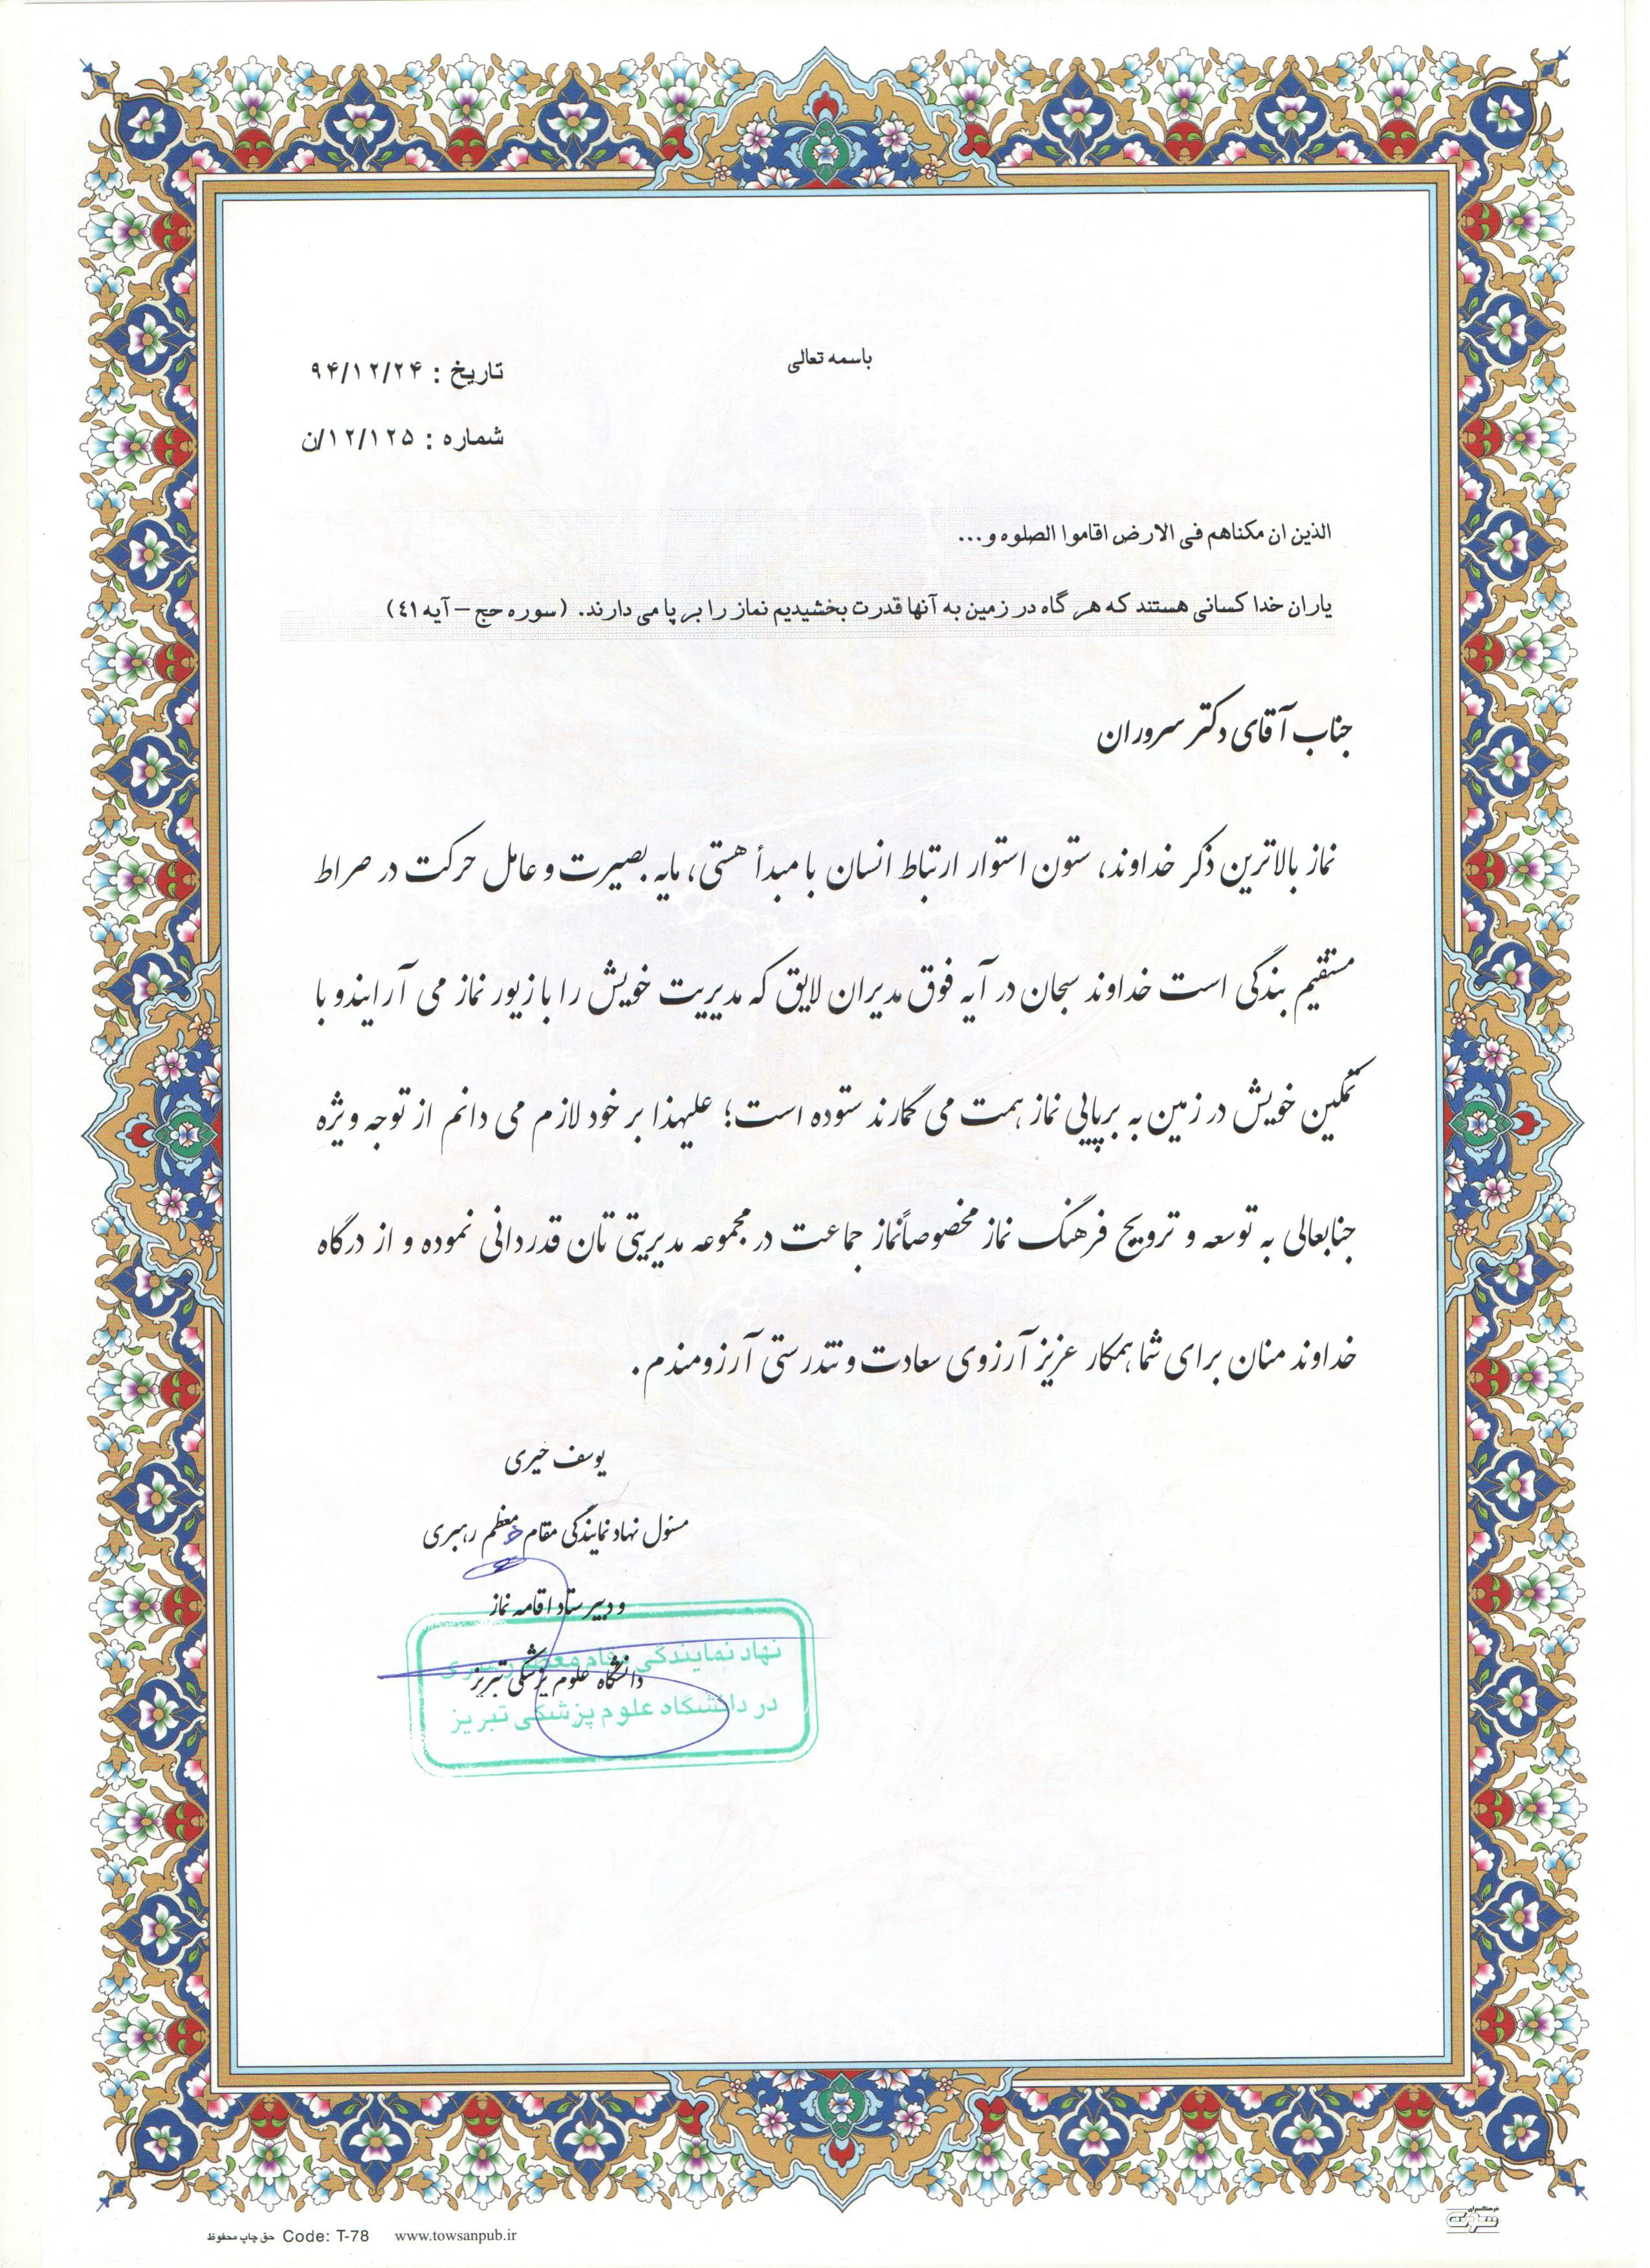 باسمه تعالی
تاریخ : ۹۴/۱۲/۲۴
شماره : ۱۲/۱۲۵/ن
الذین ان مکناهم فی الارض اقاموا الصلوه و...
یاران خدا کسانی هستند که هر گاه در زمین به آنها قدرت بخشیدیم نماز را بر پا می دارند. (سوره حج – آیه ٤١)
جناب آقای دکتر سروران
نماز بالاترین ذکر خداوند، ستون استوار ارتباط انسان با مبدأ هستی، مایه بصیرت و عامل حرکت در صراط
مستقیم بندگی است خداوند سبحان در آیه فوق مدیران لایق که مدیریت خویش را با زیور نماز می آرایند و با
تمکین خویش در زمین به برپایی نماز همت می گمارند ستوده است؛ علیهذا بر خود لازم می دانم از توجه ویژه
جنابعالی به توسعه و ترویج فرهنگ نماز مخصوصاً نماز جماعت در مجموعه مدیریتی تان قدردانی نموده و از درگاه
خداوند منان برای شما همکار عزیز آرزوی سعادت و تندرستی آرزومندم.
یوسف خیری
مسئول نهاد نمایندگی مقام معظم رهبری
و دبیر ستاد اقامه نماز
دانشگاه علوم پزشکی تبریز
نهاد نمایندگی مقام معظم رهبری
در دانشگاه علوم پزشکی تبریز
حق چاپ محفوظ Code: T-78 www.towsanpub.ir